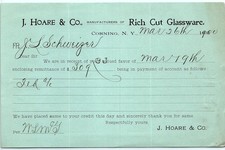 J. HOARE & CO. MANUFACTURERS OF Rich Cut Glassware.
CORNING, N. Y., Mar 26th 190
J L Schweizer
We are in receipt of your favor of Mar 19th
enclosing remittance of $ 309 being in payment of account as follows:
We have placed same to your credit this day and sincerely thank you for same.
Respectfully yours,
J. HOARE & CO.